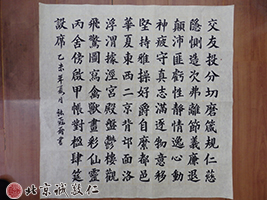 交友投分切磨箴規仁慈
隱惻造次弗離節義廉退
顛沛匪虧性靜情逸心動
神疲守真志滿逐物意移
堅持雅操好爵自縻都邑
華夏東西二京背邙面洛
浮渭據涇宮殿盤鬱樓觀
飛驚圖寫禽獸畫彩仙靈
丙舍傍啟甲帳對楹肆筵
設席 乙未年夏月
北京誠敬仁